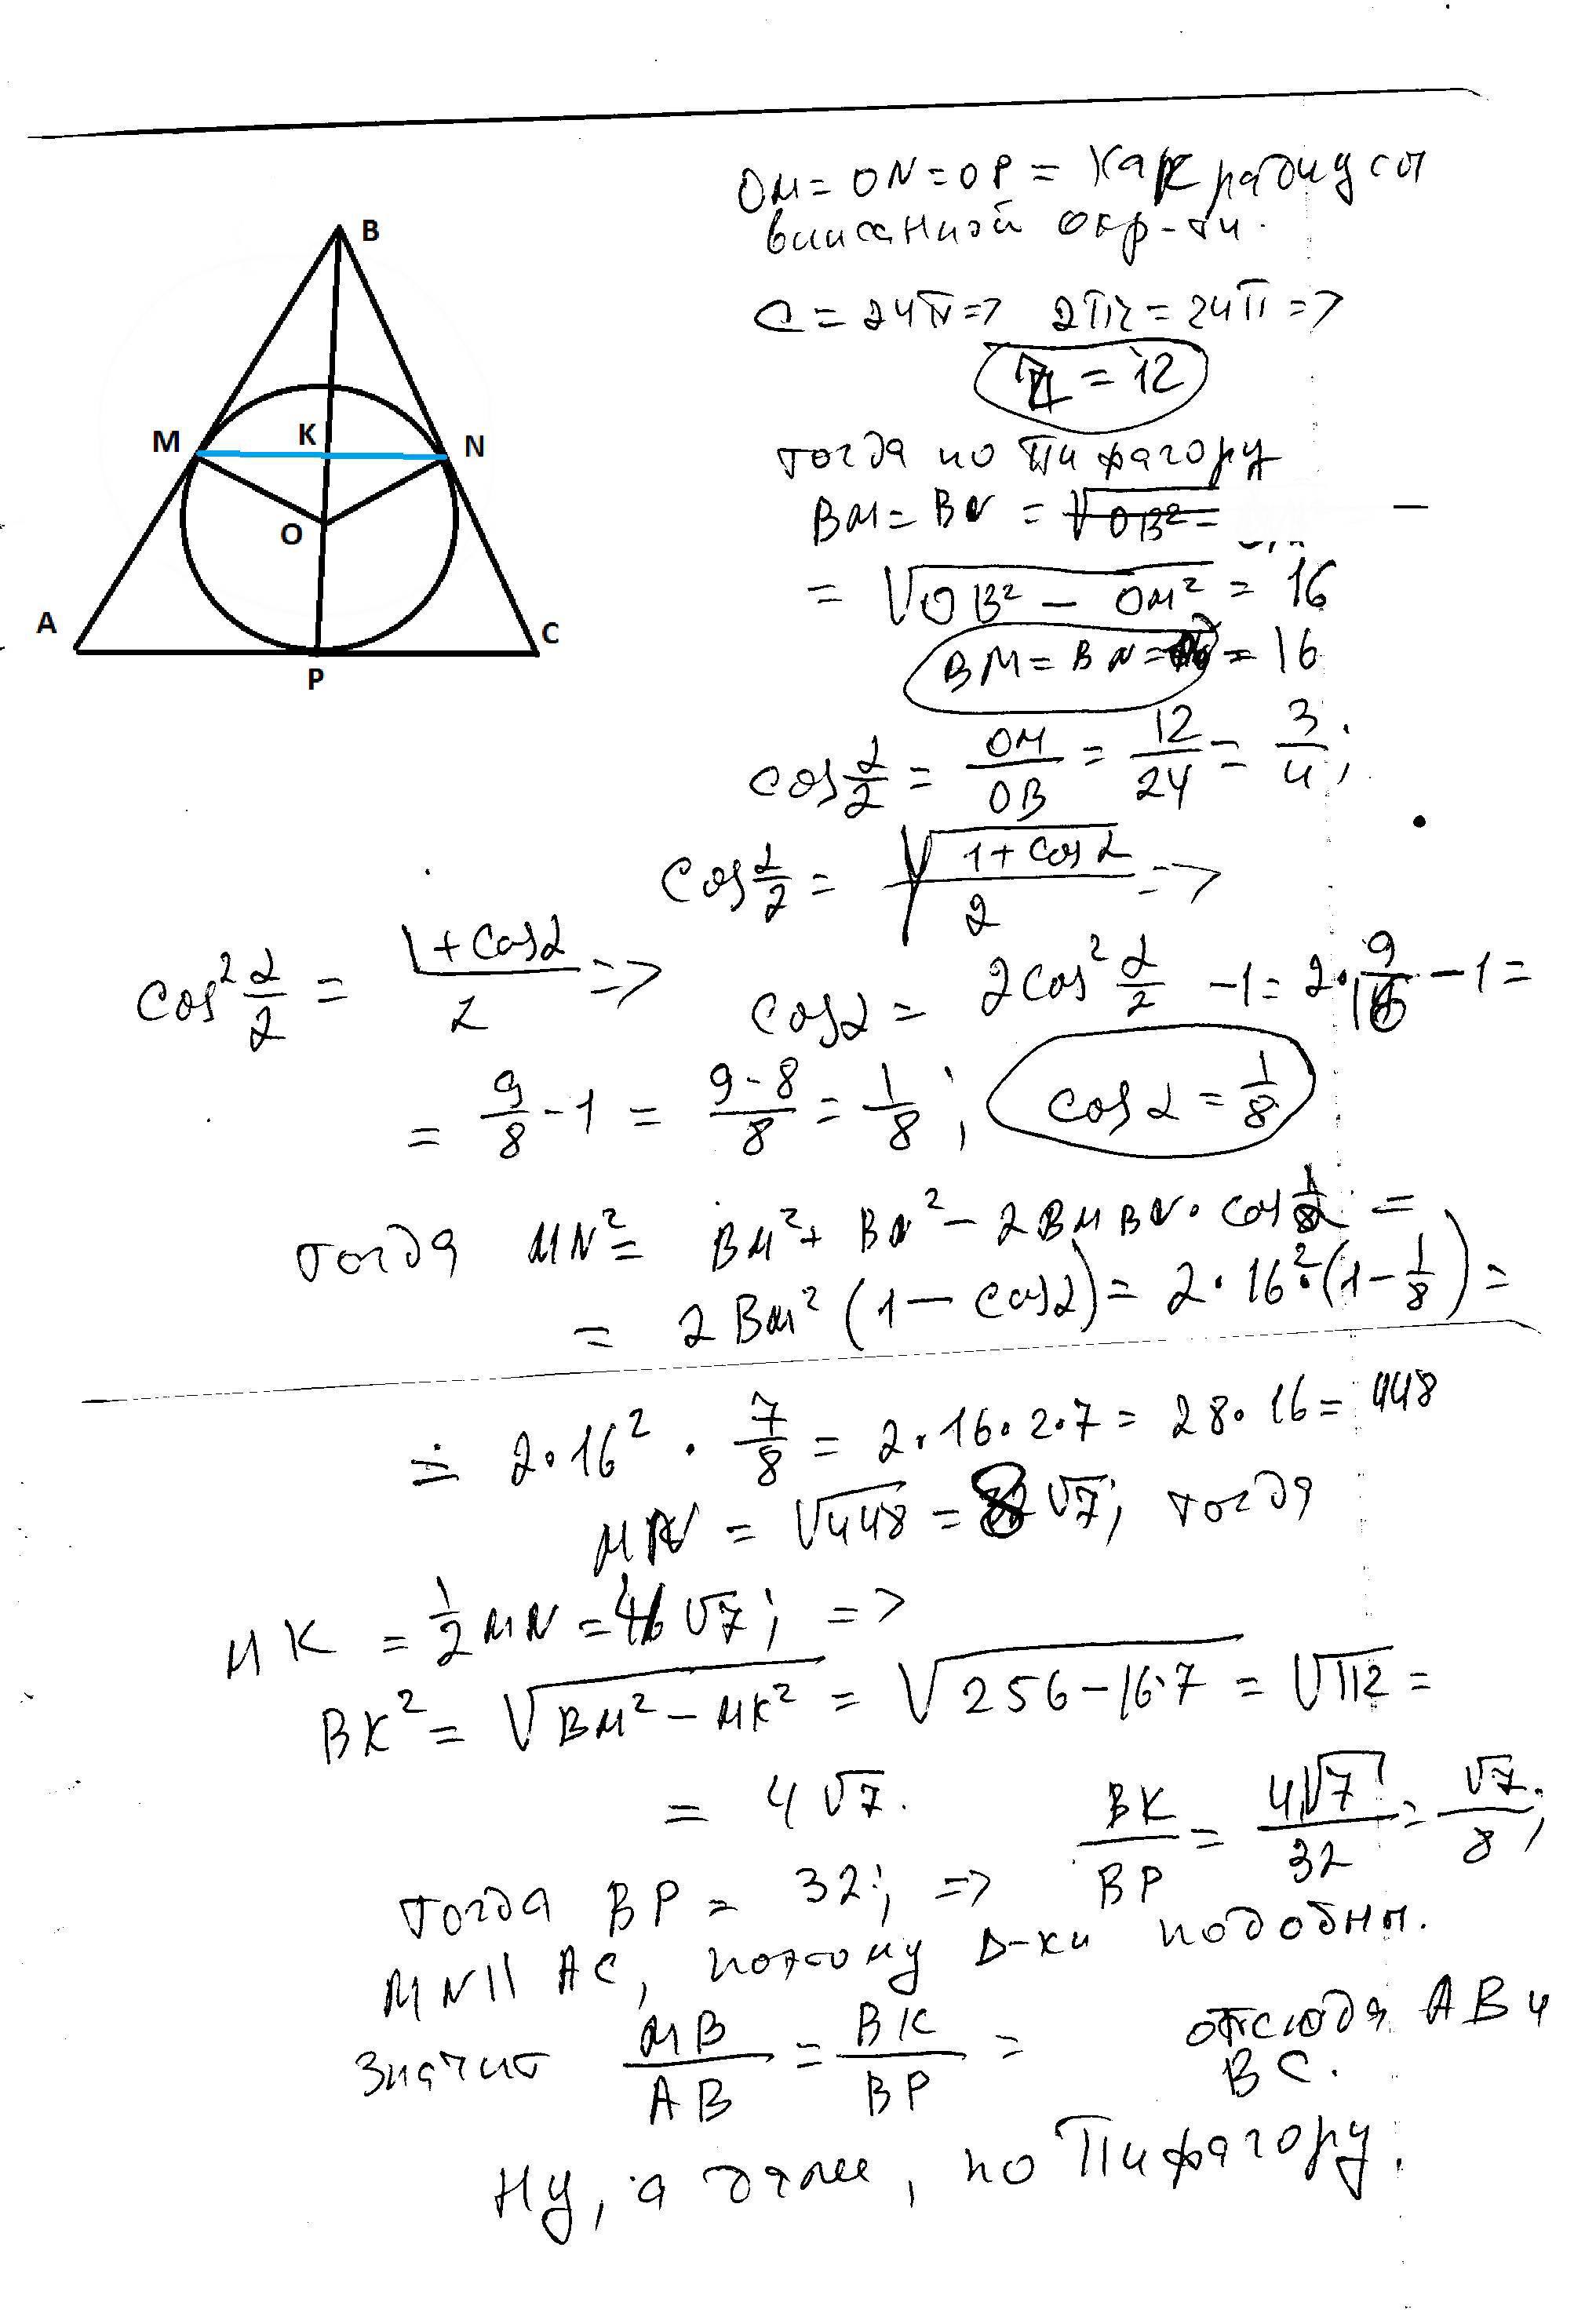 B
M
K
N
O
A
C
P
OM = ON = OP = как радиусы
вписанной окр-ти.
C = 24π => 2πr = 24π =>
r = 12
тогда по Пифагору
BM = BN = √OB² =
= √OB² − OM² = 16
BM = BN = = 16
cos α/2 = OM/OB = 12/24 = 3/4;
cos α/2 = √(1+cos α)/2 =>
cos² α/2 = 1+cos α/2 => cos α = 2cos² α/2 − 1 = 2·9/16 − 1 =
= 9/8 − 1 = 9-8/8 = 1/8; cos α = 1/8
тогда MN² = BM² + BN² − 2BM BN · cos α =
= 2BM² (1 − cos α) = 2·16²·(1 − 1/8) =
= 2·16² · 7/8 = 2·16·2·7 = 28·16 = 448
MN = √448 = 8√7; тогда
MK = 1/2 MN = 4√7; =>
BK² = √BM² − MK² = √256 − 16·7 = √112 =
= 4√7. BK/BP = 4√7/32 = √7/8;
тогда BP = 32; =>
MN || AC, поэтому Δ-ки подобны.
Значит MB/AB = BK/BP = отсюда AB и
BC.
Ну, а далее, по Пифагору.